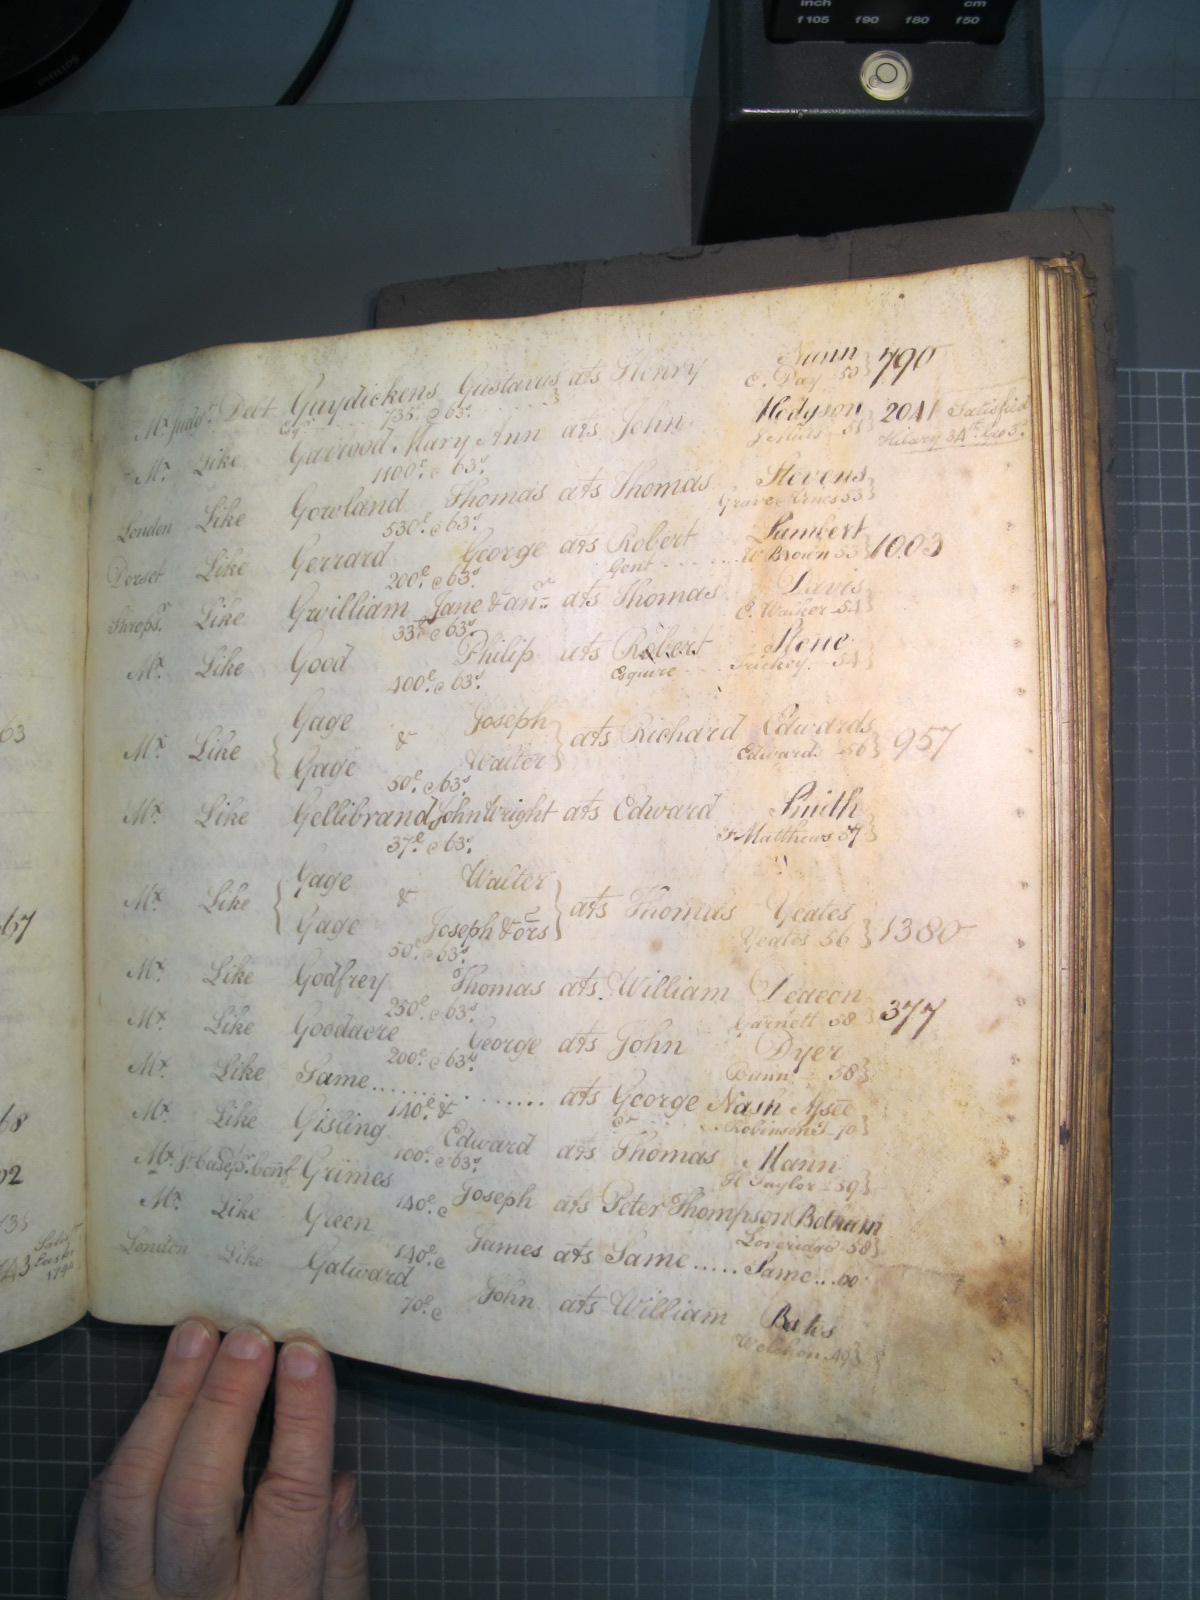 inch cm
f105 f90 f80 f50
PHILIPS
Mx. Judgt. Debt Guydickens Gustavus ats Henry Nunn 790
Esqr. 735£ & 63s. C. Day 50
Mx. Like Garrood Mary Ann ats John Hodgson 2041 Satisfied
1100£ & 63s. 51 Hilary 34th Geo 3d.
London Like Gowland Thomas ats Thomas Stevens
530£ & 63s. Grave 53
Dorset Like Gerrard George ats Robert Lambert 1003
200£ & 63s. Gent W Brown 53
Shrops. Like Gwilliam Jane & anr. ats Thomas Davis
33£ & 63s. C. Walker 54
Mx. Like Good Philip ats Robert Stone
400£ & 63s. Esquire Trickey 54
Gage Joseph
Mx. Like & ats Richard Edwards 957
Gage Walter Edwards 56
50£ & 63s.
Mx. Like Gellibrand John Wright ats Edward Smith
37£ & 63s. Matthews 57
Gage Walter
Mx. Like & ats Thomas Yeates
Gage Joseph & ors Yeates 56 1380
50£ & 63s.
Mx. Like Godfrey Thomas ats William Deacon
250£ & 63s. Garnett 58 377
Mx. Like Goodacre George ats John Dyer
200£ & 63s. Dann 58
Mx. Like Same ............ ats George Nash Assee
140£ & Robinson 70
Mx. Like Gisling Edward ats Thomas Mann
100£ & 63s. H Taylor 59
Mx. Grimes Joseph ats Peter Thompson Botham
140£ & Loveridge 58
Mx. Like Green James ats Same ..... Same ... 60
140£ &
London Like Galward John ats William Bates
70£ & Welchon 49
63
67
68
02
135
43 Satisd.
Easter
1794